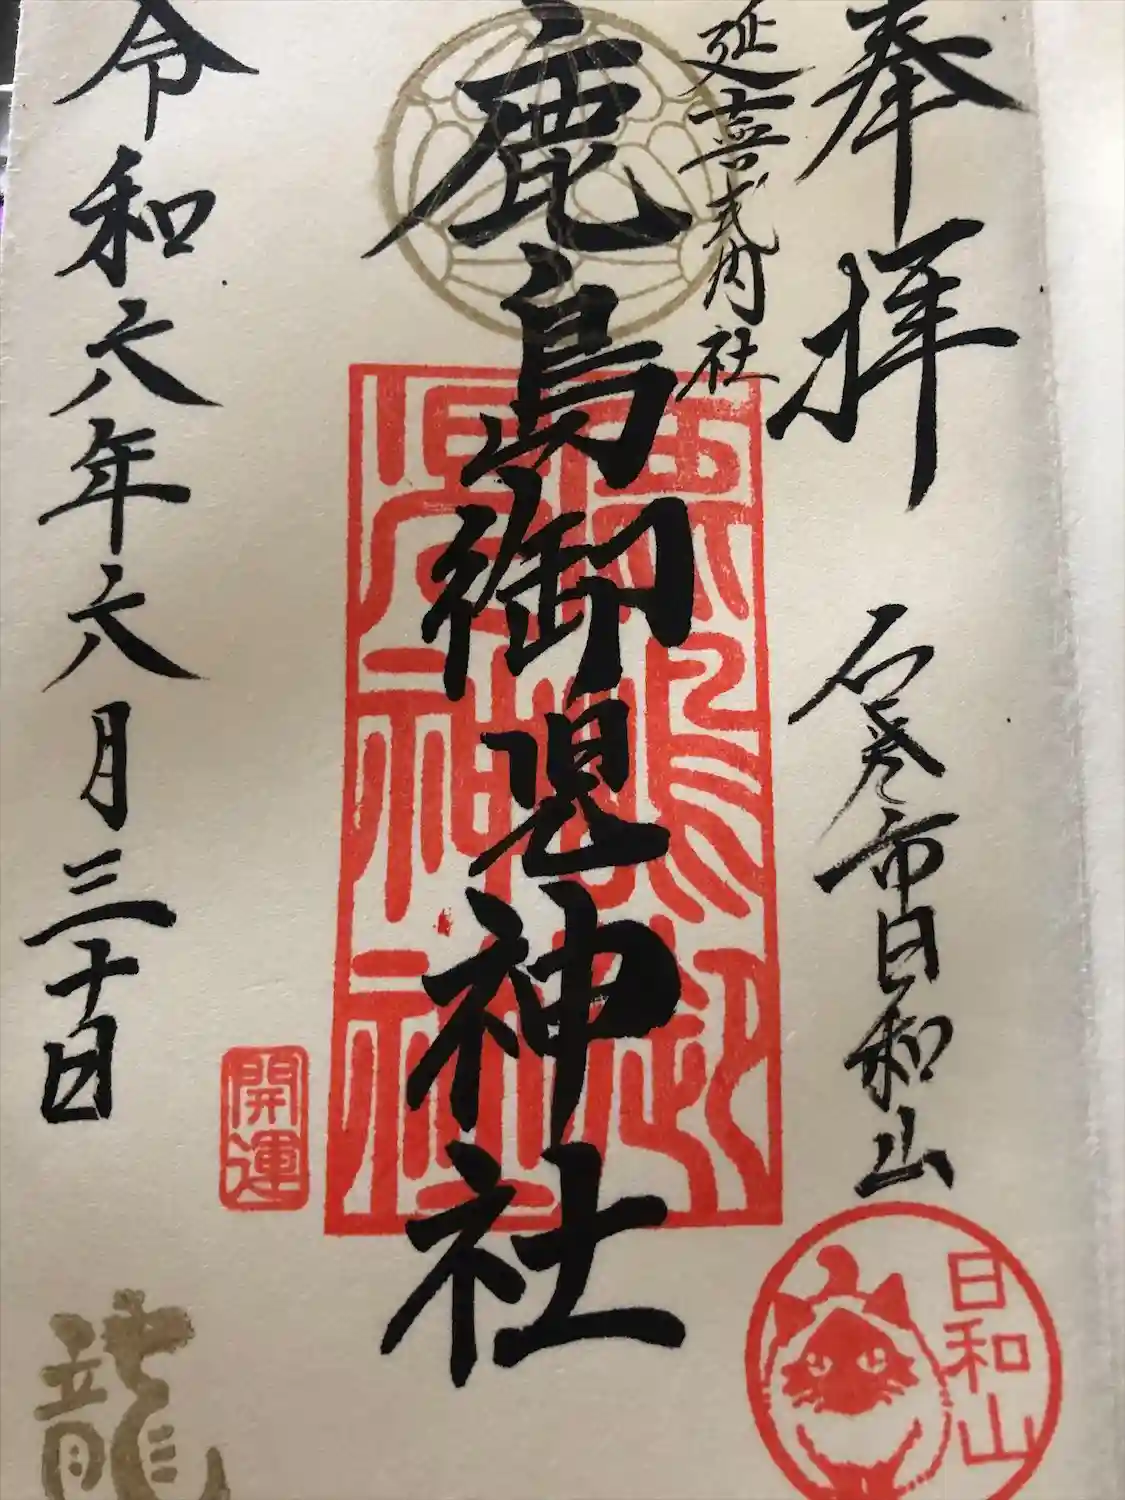 奉拝
石巻市日和山
日和山
延喜式内社
鹿島御児神社
鹿島御児神社
開運
令和六年六月三十日
龍